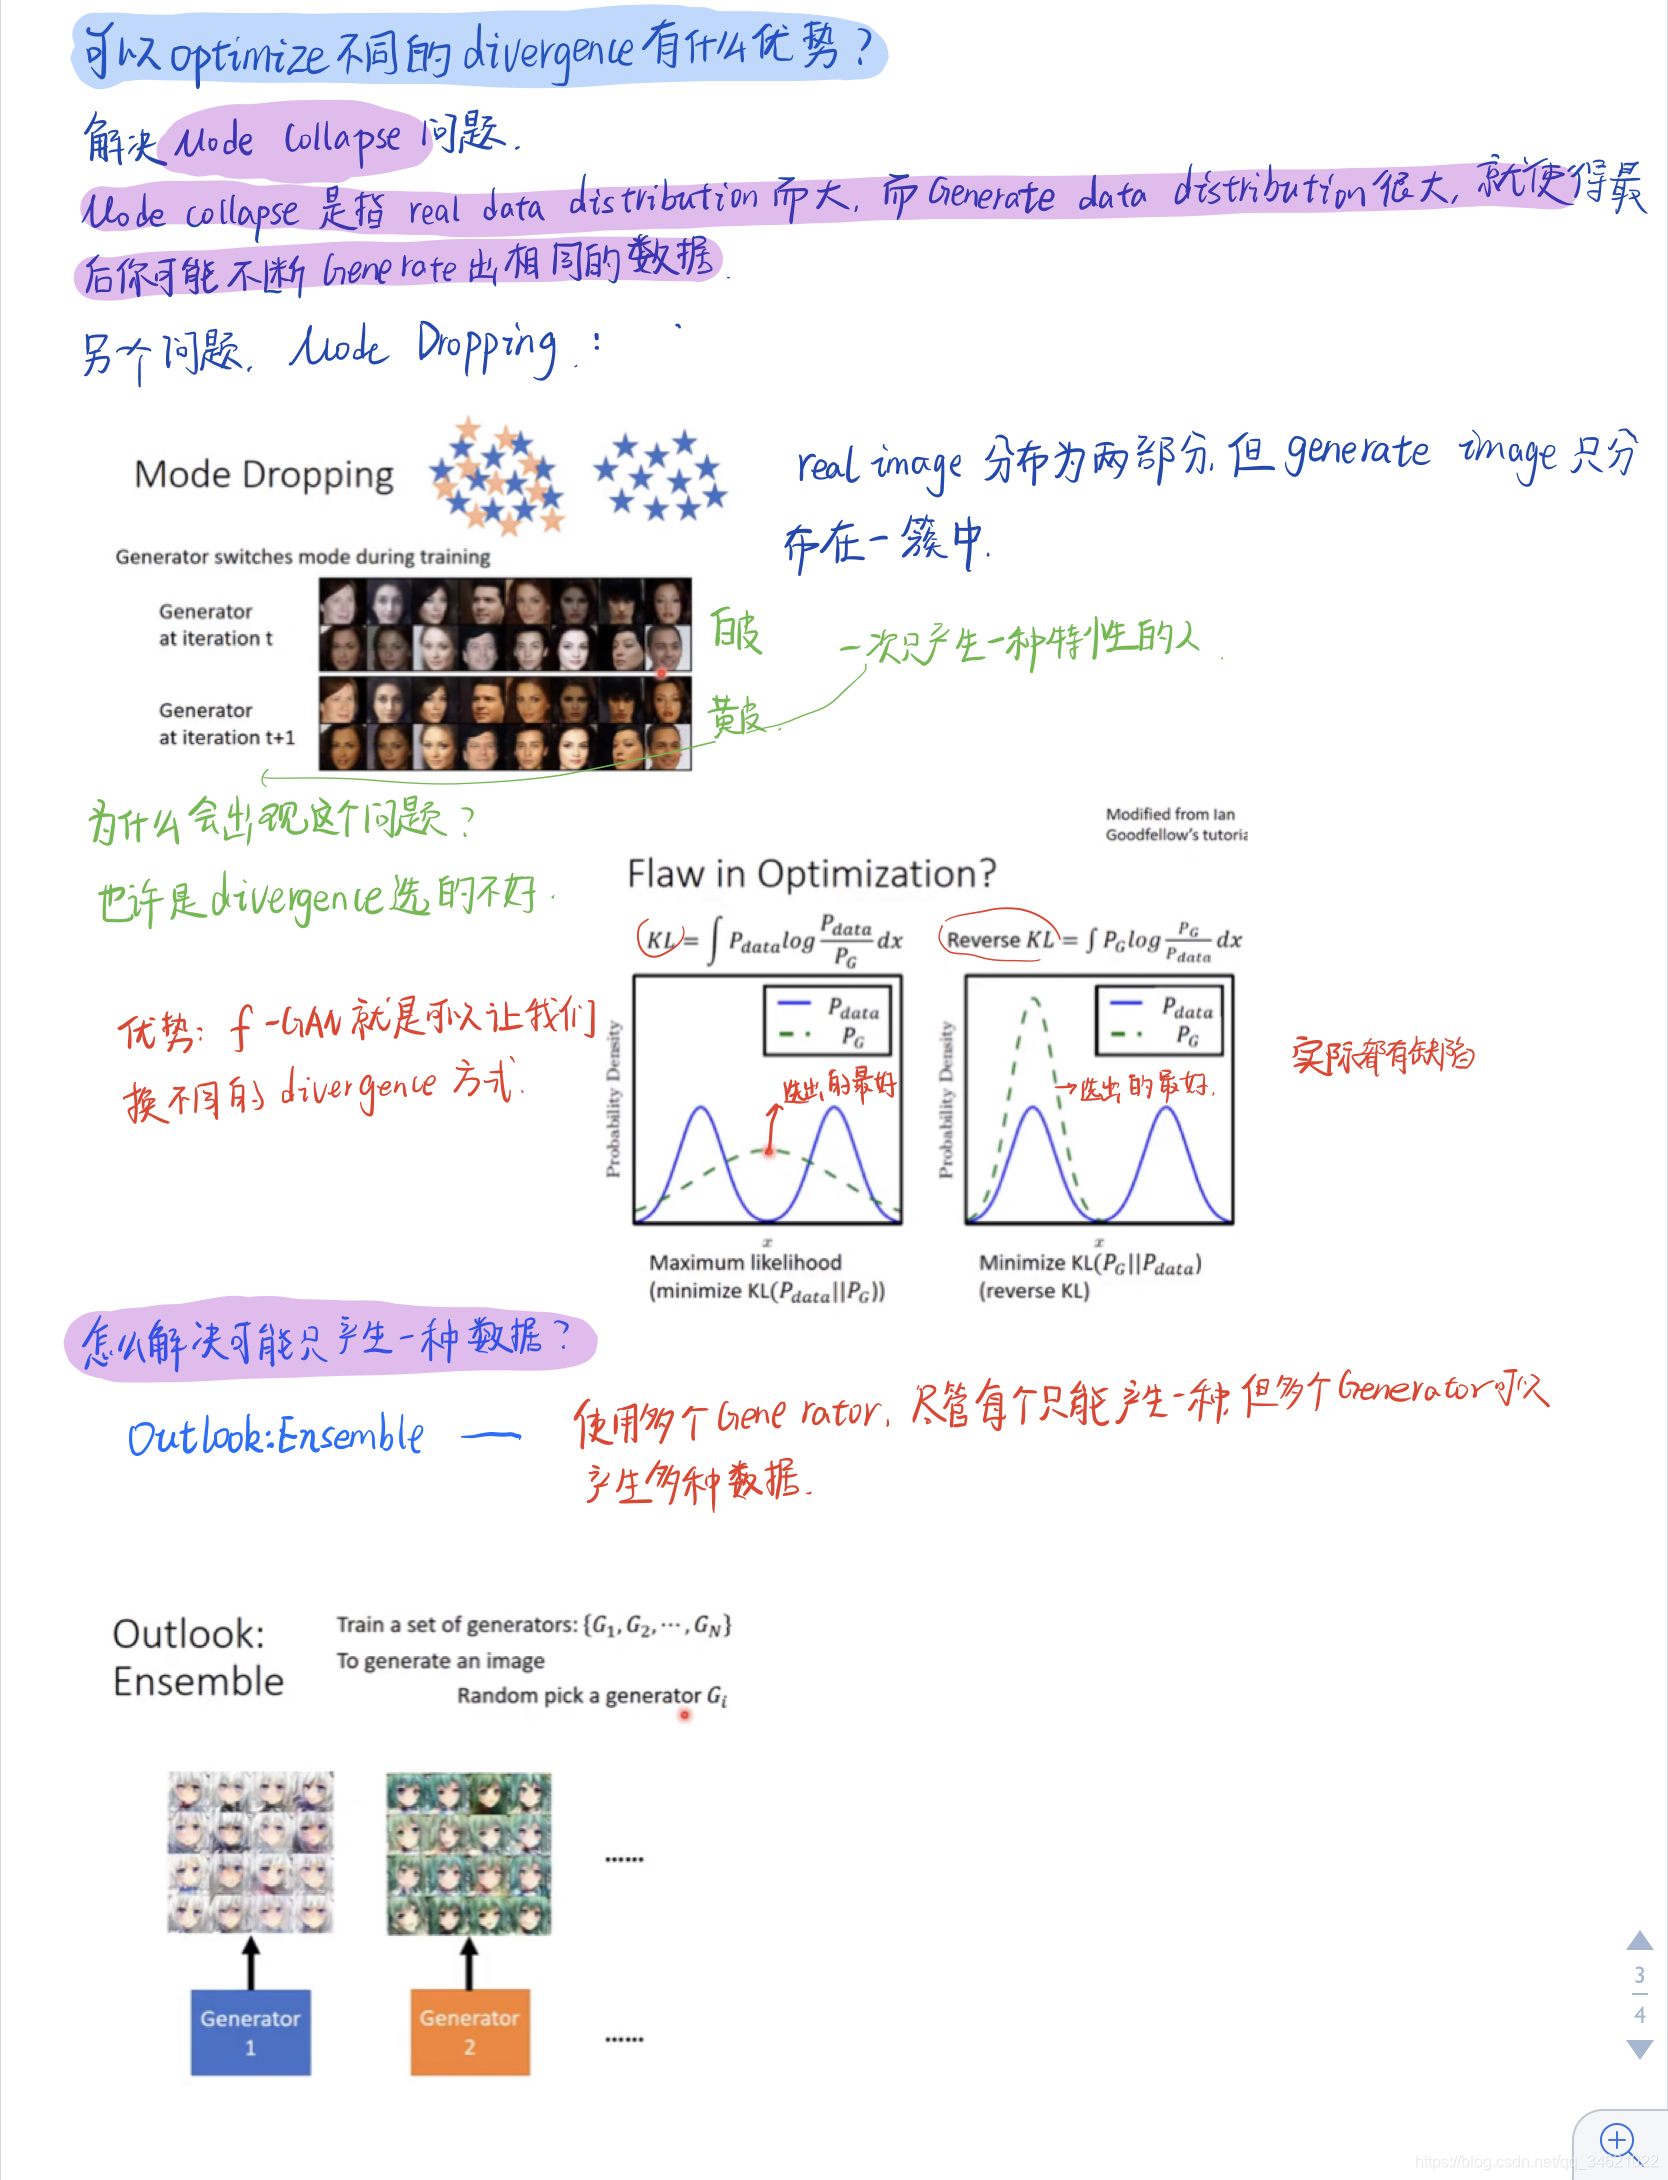 可以optimize不同的divergence有什么优势?
解决Mode Collapse问题.
Mode collapse是指real data distribution而大,而Generate data distribution很大,就使得最
后你可能不断Generate出相同的数据.
另个问题. Mode Dropping:
Mode Dropping
real image 分布为两部分,但generate image只分
布在一簇中.
Generator switches mode during training
Generator
at iteration t
白皮
一次只产生一种特性的人.
Generator
at iteration t+1
黄皮.
为什么会出现这个问题?
也许是divergence选的不好.
Modified from Ian
Goodfellow's tutoria
Flaw in Optimization?
KL = ∫ P_data log P_data/P_G dx
Reverse KL = ∫ P_G log P_G/P_data dx
优势: f-GAN就是可以让我们
换不同的divergence方式.
P_data
P_G
选出的最好
Probability Density
x
Maximum likelihood
(minimize KL(P_data||P_G))
P_data
P_G
→选出的最好.
Probability Density
x
Minimize KL(P_G||P_data)
(reverse KL)
实际都有缺陷
怎么解决可能只产生一种数据?
Outlook:Ensemble —
使用多个Generator,尽管每个只能产生一种,但多个Generator可以
产生多种数据.
Outlook:
Ensemble
Train a set of generators: {G_1, G_2, ⋯, G_N}
To generate an image
Random pick a generator G_i
......
Generator
1
Generator
2
......
3
4
https://blog.csdn.net/qq_34621022